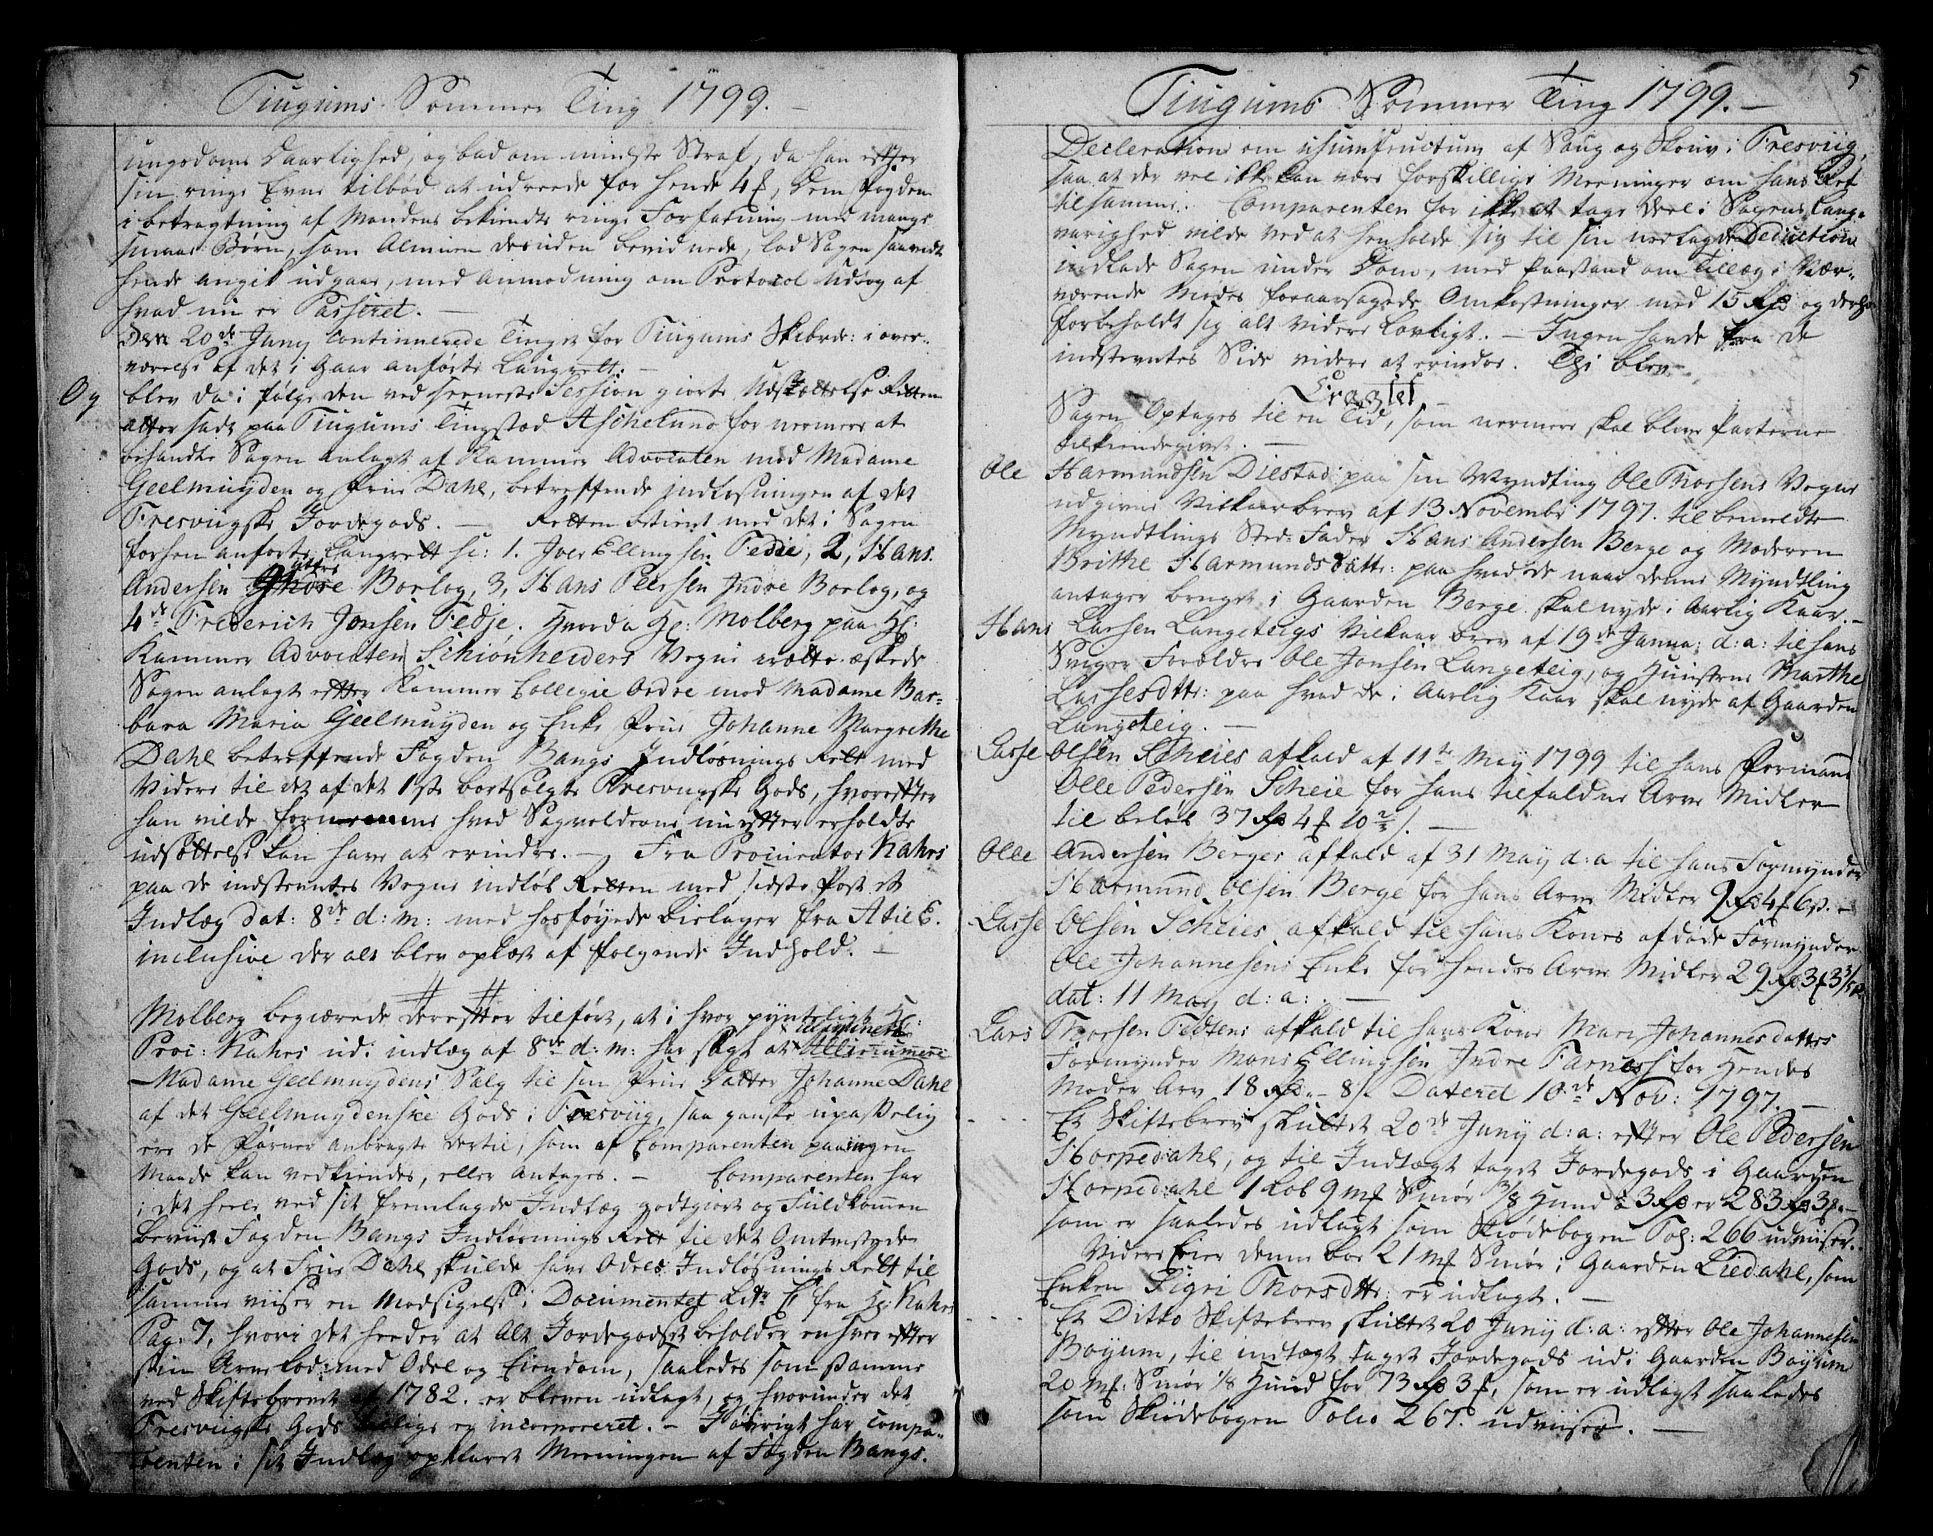 Tiugums Sommer Ting 1799. —
ungdoms Daarlighed, og bad om mindste Straf, da han efter
sin ringe Evne tilbød at udreede for hende 4 f, Dem Fogden
i betragtning af Mandens bekiendte ringe Forfatning med mange
smaae Børn, som Almuen desuden bevidnede, lod Sagen saavidt
hende angik udgaae, med Anmodning om Protocol Udtog af
hvad nu er Passeret. —
Den 20de Juny Continuerede Tinget for Tiugums Skibrde: i over-
værelse af det i Gaar anførte Laugrett: —
Og blev da i følge den ved seeneste Session giorte Udsættelse Retten
atter sadt paa Tiugums Tingstæd Aschelund for nermere at
behandle Sagen anlagt af Kammer Advocaten mod Madame
Geelmuyden og Frue Dahl, betreffende indløsningen af det
Fresvigske Jordegods. — Retten betient med det i Sagen
forhen anførte Laugrett sc: 1. Iver Ellingsen Fedie, 2, Hans
Andersen yttre Borlog, 3, Hans Peersen Indre Borlog, og
4de Frederich Jonsen Fedje. Hvorda Hr: Molberg paa Hr:
Kammer Advocaten Schionheiders Vegne irætte æskede
Sagen anlagt efter Kammer Collegie Ordre mod Madame Bar-
bara Maria Geelmuyden og Enke Frue Johanne Margrethe
Dahl betreffende Fogden Bangs Indløsnings Rett med
Videre til det af det 1ste bortsolgte Fresvigske Gods, hvorefter
han vilde fornemme hvad Sagvolderne nu efter erholdte
udsættelse kan have at erindre. — Fra Procurator Nahrs
paa de indstevntes Vegne indløb Retten med sidste Post et
Indlæg dat: 8de d: m: med hosføyede Bielager fra A til E.
inclusive der alt blev oplæst af følgende Indhold. —
# #
Molberg begiærede derefter tilført, at i hvor pynteligt Hr:
Proc: Nahrs udi indlæg af 8de d: m: har søgt at
Madame Geelmuydens Salg til sin Frue Datter Johanne Dahl
af det Geelmuydenske Gods i Fresviig, saa ganske upasselig
ere de anbragte dertil, som af Comparenten paa ingen
Maade kan vedkiendes, eller antages. — Comparenten har
i det heele ved sit fremlagde Indlæg godtgiort og Fuldkommen
beviist Fogden Bangs Indløsnings Rett til det Omtvistede
Gods, og at Frue Dahl skulde have Odels Indløsnings Rett til
samme viiser en Modsigelse i Documentet Litr E fra Hr: Nahrs
Pag: 7, hvori det heeder at Alt Jordegodset beholder enhver efter
sin Arve Lod med Odel og Eiendom, saaledes som samme
ved Skiftebrevet af 1782. er bleven udlagt, og hvorunder det
Fresvigske Gods er incorporeret. — I øvrigt har Compa-
renten i sit Indlæg opklaret Meeningen af Fogden Bangs.
5
Tiugums Sommer Ting 1799. —
Decleration om usumfructum af Saug og Skouv i Fresviig,
saa at der vel ikke kan være forskillige Meeninger om hans Ret
til samme. Comparenten for ikke at tage Deel i Sagens Lang-
varighed vilde ved at henholde sig til sin nedlagde Deduction
indlade Sagen under Dom, med Paastand om Tillæg i Nær-
værende Mødes foraarsagede Omkostninger med 15 Rd og derhos
forbeholdt sig alt Videre Lovligt. — Ingen havde fra de
indstevntes Side videre at erindre. Thi blev
Eragtet
Sagen Optages til en Tid, som nermere skal blive Parterne
tilkiendegivet. —
Ole Harmundsen Diestad paa sin Myndling Ole Thorsens Vegne
udgivne Vilkaarbrev af 13 Novembr 1797. til bemeldte
Myndlings Sted-Fader Hans Andersen Berge og Moderen
Brithe Harmundsdattr: paa hvad de naar denne Myndling
antager bruget i Gaarden Berge skal nyde i Aarlig Kaar. —
Hans Larsen Langeteigs Vilkaar brev af 19de Janua: d: a: til hans
Sviger Forældre Ole Jonsen Langeteig, og Huustrue Marthe
Lassesdttr: paa hvad de i Aarlig Kaar skal nyde af Gaarden
Langeteig. —
Lasse Olsen Scheies afkald af 11te May 1799 til hans Formand
Olle Pedersen Scheie for hans tilfaldne Arve Midler
til beløb 37 Rd 4 f 10 s. —
Olle Andersen Berges afkald af 31 May d: a til hans Formynder
Harmund Olsen Berge for hans Arve Midler 9 Rd 4 f 6 s. —
Lasse Olsen Scheies, afkald til hans Kones afdøde Formynder
Ole Johannesens Enke for hendes Arve Midler 29 Rd 3 f 3
dat: 11 May d: a: —
Lars Thorsen Fedtens afkald til hans Kone Mari Johannesdatters
Formynder Mons Ellingsen Indre Farnes for hendes
Moder Arv 18 Rd – 8 s. Dateret 10de Nov: 1797. —
Et Skiftebrev skiftet 20de Juny d: a: efter Ole Pedersen
Horpedahl, og til Indtægt taget Jordegods i Gaarden
Horpedahl 1 Løb 9 mk Smør 3/8 Huud à 3 Rd er 283 Rd 3 f —
som er saaledes udlagt som Skiødebogen Fol: 266 udviiser.
Videre Eier denne boe 21 mk Smør i Gaarden Liedahl, som
Enken Sigri Thorsdttr: er udlagt. —
Et Ditto Skiftebrev skiftet 20 Juny d: a: efter Ole Johannesen
Bøyum, til indtægt taget Jordegods udi Gaarden Bøyum
20 mk: Smør 1/8 Huud for 73 Rd 3 f, som er udlagt saaledes
som Skiødebogen Folio 267. udviiser. —